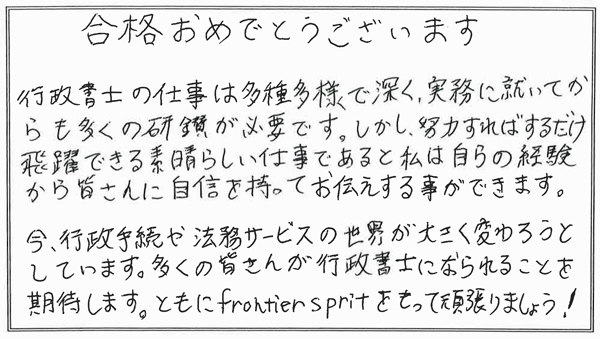 合格おめでとうございます
行政書士の仕事は多種多様で深く、実務に就いてか
らも多くの研鑽が必要です。しかし、努力すればするだけ
飛躍できる素晴らしい仕事であると私は自らの経験
から皆さんに自信を持ってお伝えする事ができます。
今、行政手続や法務サービスの世界が大きく変わろうと
しています。多くの皆さんが行政書士になられることを
期待します。ともにfrontier spritをもって頑張りましょう!